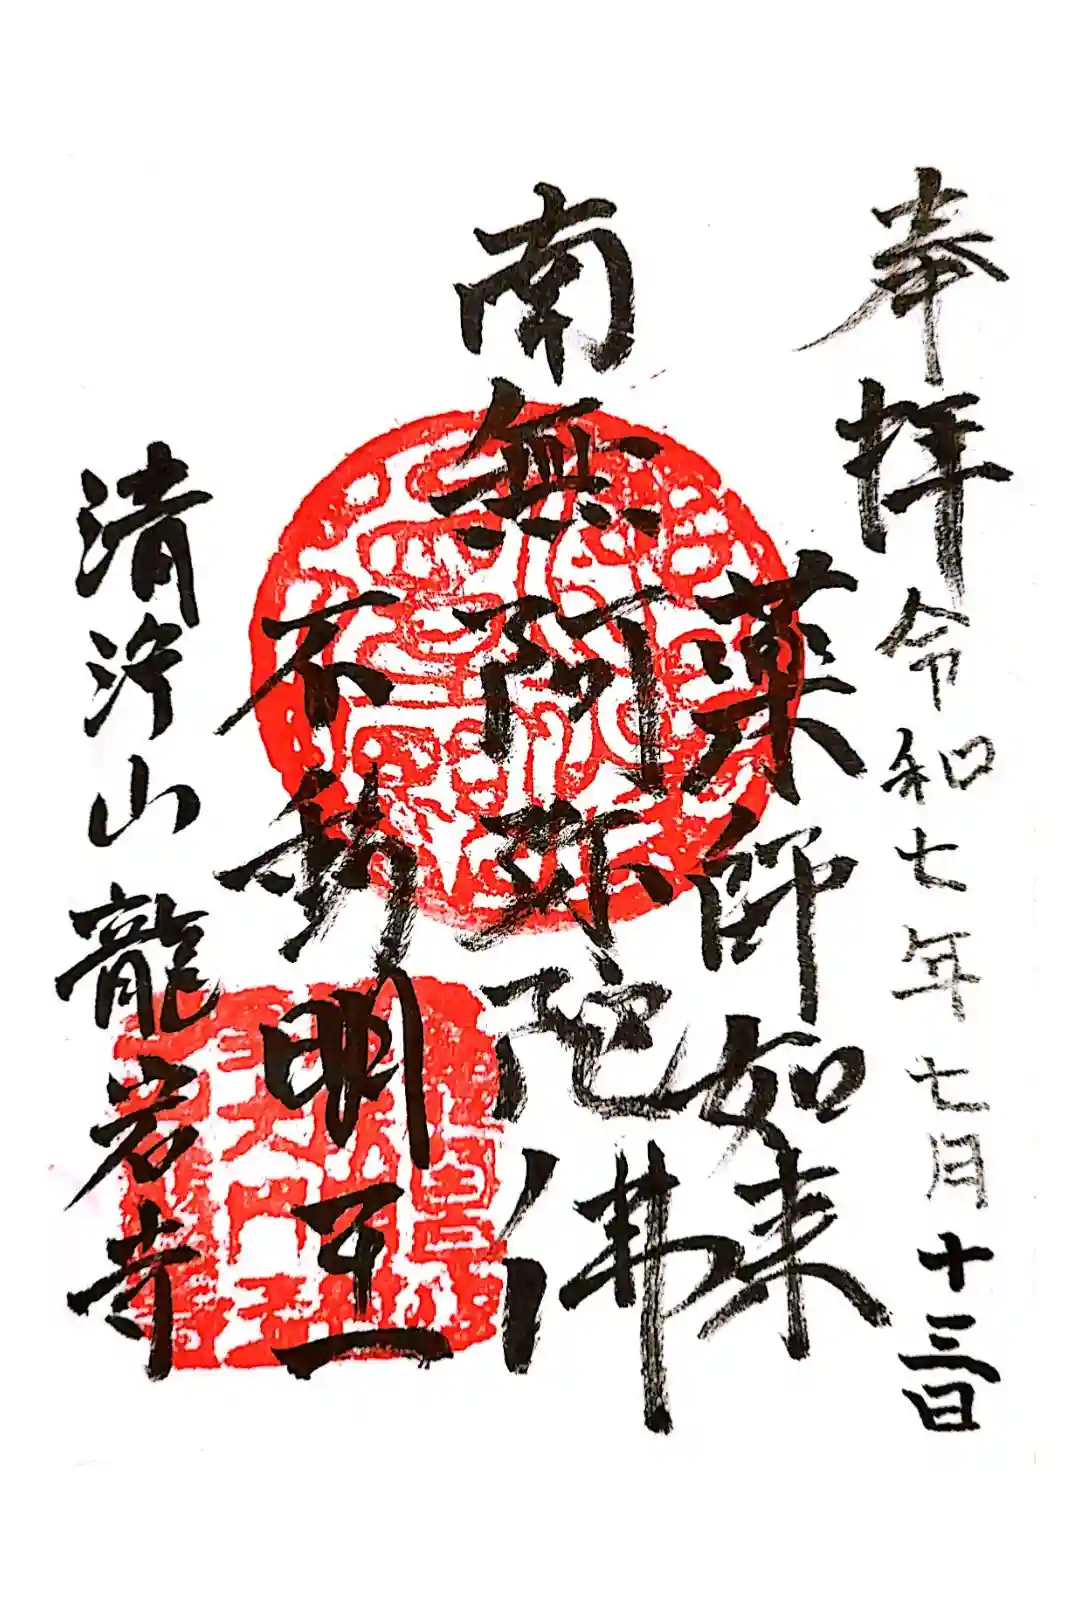 奉拝 令和七年七月十三日
薬師如来
南無阿弥陀佛
不動明王
清浄山 龍岩寺